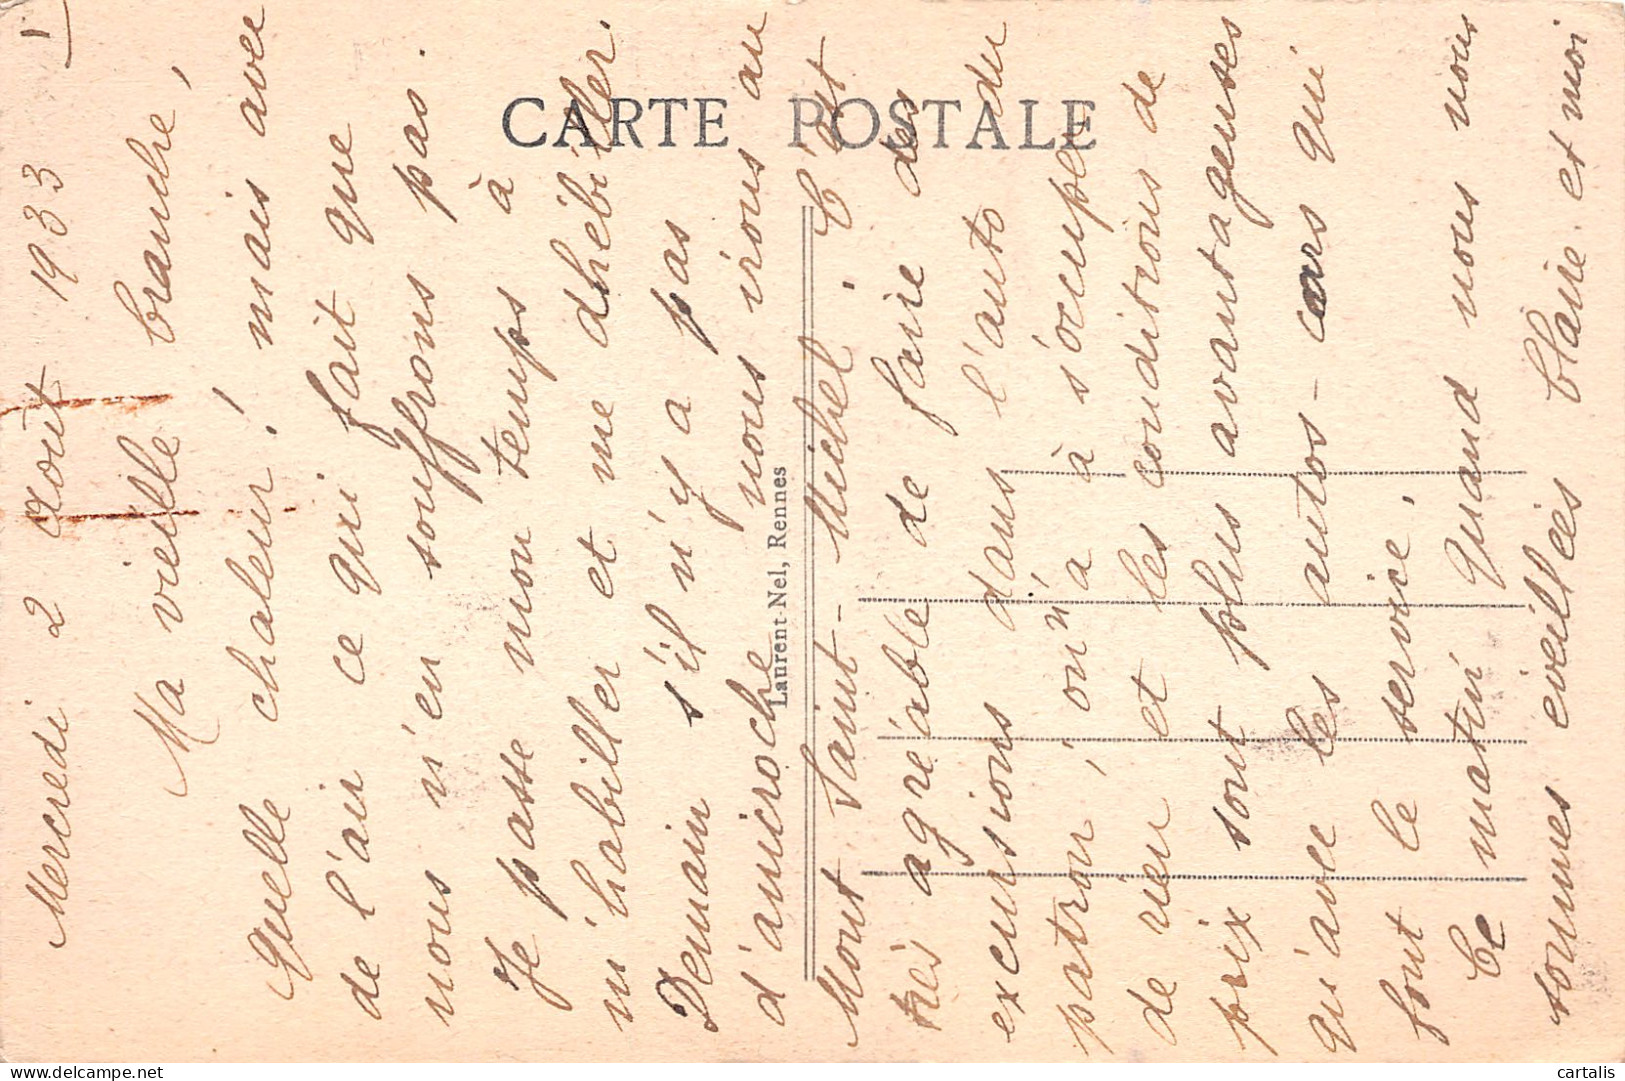 1
Mercredi 2 Août 1933
Ma vieille branche,
Quelle chaleur! mais avec
de l'air ce qui fait que
nous n'en souffrons pas.
Je passe mon temps à
m'habiller et me dhébiller.
Demain s'il n'y a pas
d'anicroche nous irons au
Mont Saint-Michel. C'est
très agréable de faire des
excursions dans l'auto du
patron, on n'a à s'occuper
de rien et les conditions de
prix sont plus avantageuses
qu'avec les autos-cars qui
font le service.
Ce matin quand nous nous
sommes éveillées Claire et moi
CARTE POSTALE
Laurent-Nel, Rennes
cartalis
delcampe.net